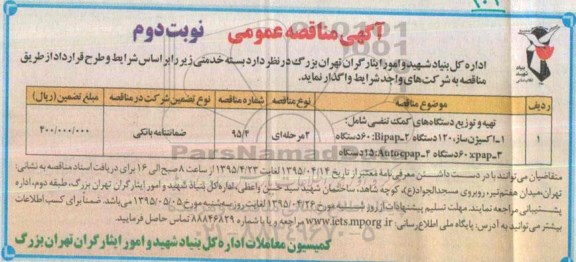 ۱۰۶
آگهی مناقصه عمومی نوبت دوم
اداره کل بنیاد شهید و امور ایثارگران تهران بزرگ در نظر دارد بسته خدمتی زیر را بر اساس شرایط و طرح قرارداد از طریق
مناقصه به شرکت‌های واجد شرایط واگذار نماید.
ردیف موضوع مناقصه نوع مناقصه شماره مناقصه نوع تضمین شرکت در مناقصه مبلغ تضمین (ریال)
۱ تهیه و توزیع دستگاه‌های کمک تنفسی شامل: ۲مرحله‌ای ۹۵/۴ ضمانتنامه بانکی ۴۰۰/۰۰۰/۰۰۰
۱ـ اکسیژن‌ساز ۱۲۰دستگاه ۲ـBipap: ۶۰دستگاه
۳ـxpap: ۶۰دستگاه ۴ـAutocpap: ۱۵دستگاه
متقاضیان می‌توانند با در دست داشتن معرفی‌نامه معتبر از تاریخ ۱۳۹۵/۰۴/۱۴ لغایت ۱۳۹۵/۴/۲۳ از ساعت ۸ صبح الی ۱۶ برای دریافت اسناد مناقصه به نشانی:
تهران، میدان هفت‌تیر، روبروی مسجدالجواد(ع)، کوچه شاهد، ساختمان شهید سید حسن واعظی، اداره کل بنیاد شهید و امور ایثارگران تهران بزرگ، طبقه دوم، اداره
پشتیبانی مراجعه نمایند. مهلت تسلیم پیشنهادات از روز شنبه مورخ ۱۳۹۵/۰۴/۲۶ لغایت روز سه‌شنبه مورخ ۱۳۹۵/۰۵/۰۵ می‌باشد. ضمناً برای کسب اطلاعات
بیشتر می‌توانید به آدرس: پایگاه ملی اطلاع‌رسانی: www.iets.mporg.ir مراجعه و یا با شماره ۸۸۸۴۶۸۲۹ تماس حاصل فرمایید.
کمیسیون معاملات اداره کل بنیاد شهید و امور ایثارگران تهران بزرگ
ParsNamadData